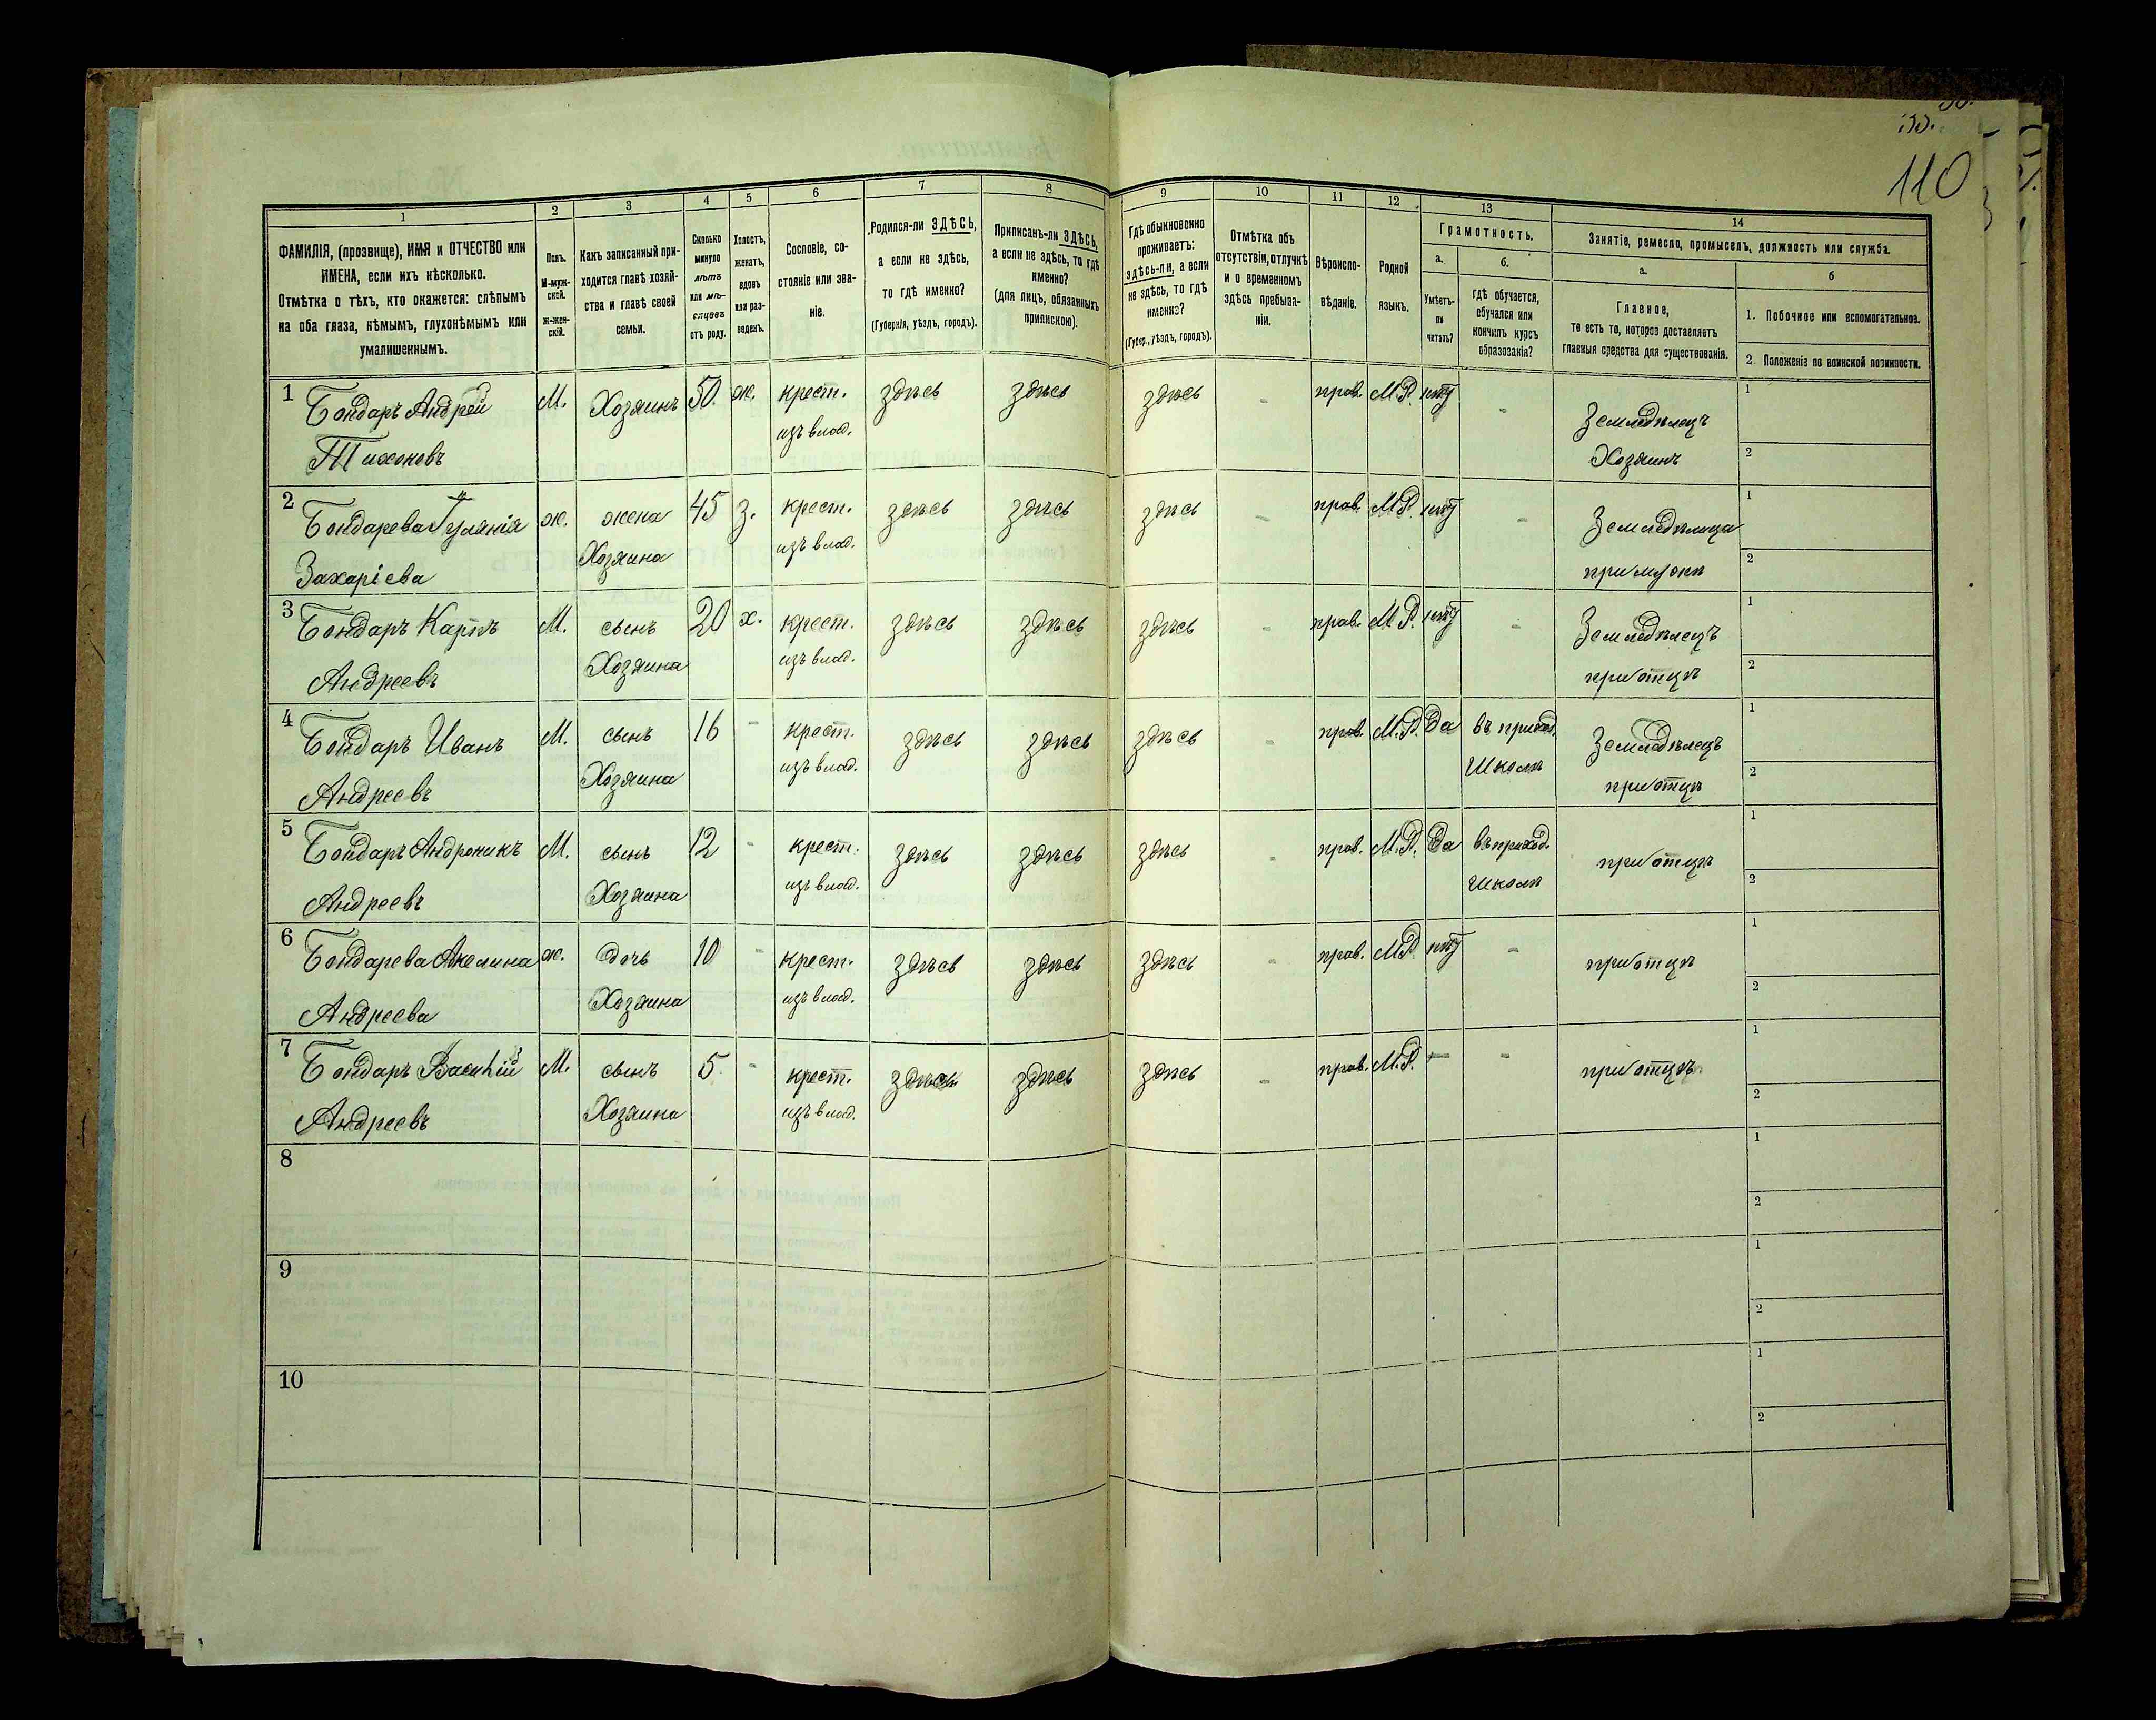 110
1
2
3
4
5
6
7
8
9
10
11
12
13
14
ФАМИЛІЯ, (прозвище), ИМЯ и ОТЧЕСТВО или
ИМЕНА, если ихъ нѣсколько.
Отмѣтка о тѣхъ, кто окажется: слѣпымъ
на оба глаза, нѣмымъ, глухонѣмымъ или
умалишеннымъ.
Полъ.
М-муж-
ской.
ж-жен-
скій.
Какъ записанный при-
ходится главѣ хозяй-
ства и главѣ своей
семьи.
Сколько
минуло
лѣтъ
или мѣ-
сяцевъ
отъ роду.
Холостъ,
женатъ,
вдовъ
или раз-
веденъ.
Сословіе, со-
стояніе или зва-
ніе.
Родился-ли ЗДѢСЬ,
а если не здѣсь,
то гдѣ именно?
(Губернія, уѣздъ, городъ).
Приписанъ-ли ЗДѢСЬ,
а если не здѣсь, то гдѣ
именно?
(для лицъ, обязанныхъ
припискою).
Гдѣ обыкновенно
проживаетъ:
здѣсь-ли, а если
не здѣсь, то гдѣ
именно?
(Губер., уѣздъ, городъ).
Отмѣтка объ
отсутствіи, отлучкѣ
и о временномъ
здѣсь пребыва-
ніи.
Вѣроиспо-
вѣданіе.
Родной
языкъ.
Грамотность.
а.
б.
Умѣетъ-
ли
читать?
гдѣ обучается,
обучался или
кончилъ курсъ
образованія?
Занятіе, ремесло, промыселъ, должность или служба.
а.
б
Главное,
то есть то, которое доставляетъ
главныя средства для существованія.
1. Побочное или вспомогательное.
2. Положеніе по воинской повинности.
1 Бондаръ Андрей М. Хозяинъ 50. ж. крест. здѣсь здѣсь здѣсь - прав. М.Р. нѣт - Земледѣлецъ 1
Тихоновъ изъ влад. Хозяинъ 2
2 Бондарева Гуляція ж. жена 45 з. крест. здѣсь здѣсь здѣсь - прав. М.Р. нѣт - Земледѣлица 1
Захаріева Хозяина изъ влад. при мужѣ 2
3 Бондаръ Карпъ М. сынъ 20 х. крест. здѣсь здѣсь здѣсь - прав. М.Р. нѣт - Земледѣлецъ 1
Андреевъ Хозяина изъ влад. при отцѣ 2
4 Бондаръ Иванъ М. сынъ 16 - крест. здѣсь здѣсь здѣсь - прав. М.Р. Да въ приход. Земледѣлецъ 1
Андреевъ Хозяина изъ влад. Школѣ при отцѣ 2
5 Бондаръ Андроникъ М. сынъ 12 - крест. здѣсь здѣсь здѣсь - прав. М.Р. Да въ приход. при отцѣ 1
Андреевъ Хозяина изъ влад. Школѣ 2
6 Бондарева Акелина ж. дочь 10 - крест. здѣсь здѣсь здѣсь - прав. М.Р. нѣт - при отцѣ 1
Андреева Хозяина изъ влад. 2
7 Бондаръ Василій М. сынъ 5 - крест. здѣсь здѣсь здѣсь - прав. М.Р. - - при отцѣ 1
Андреевъ Хозяина изъ влад. 2
8 1
2
9 1
2
10 1
2